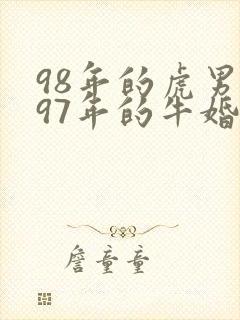 98年的虎男
97年的牛婚
詹童童